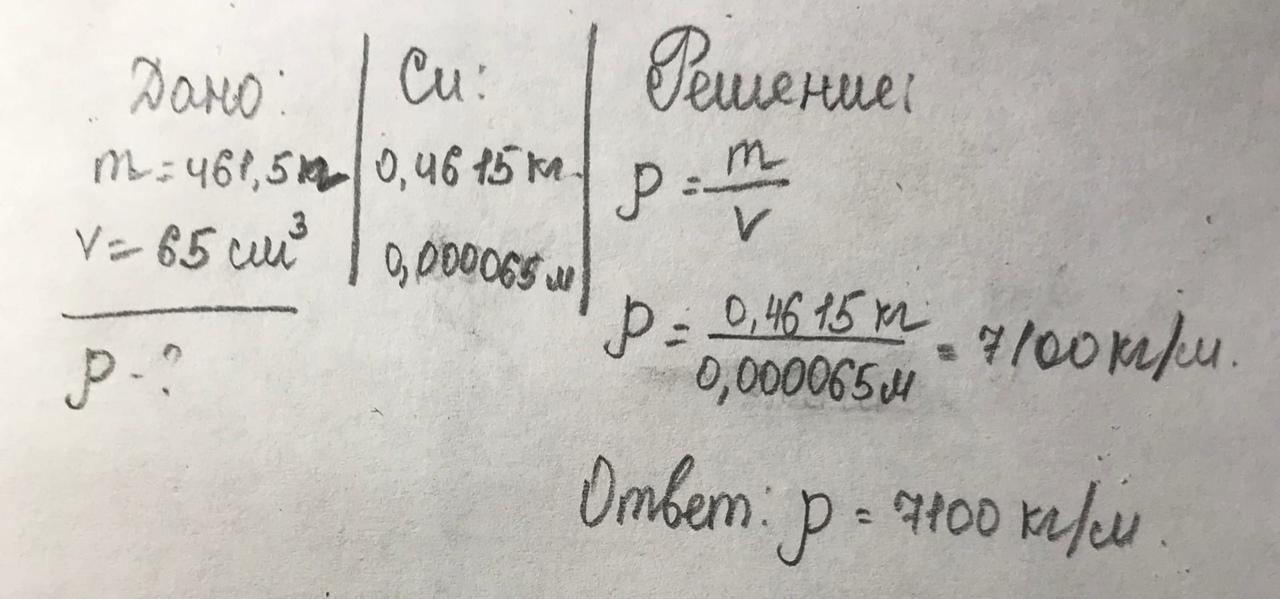 Дано:
m = 461,5 кг
V = 65 см³
p - ?
Си:
0,4615 кг
0,000065 м
Решение:
p = m / V
p = 0,4615 кг / 0,000065 м = 7100 кг/м.
Ответ: p = 7100 кг/м.